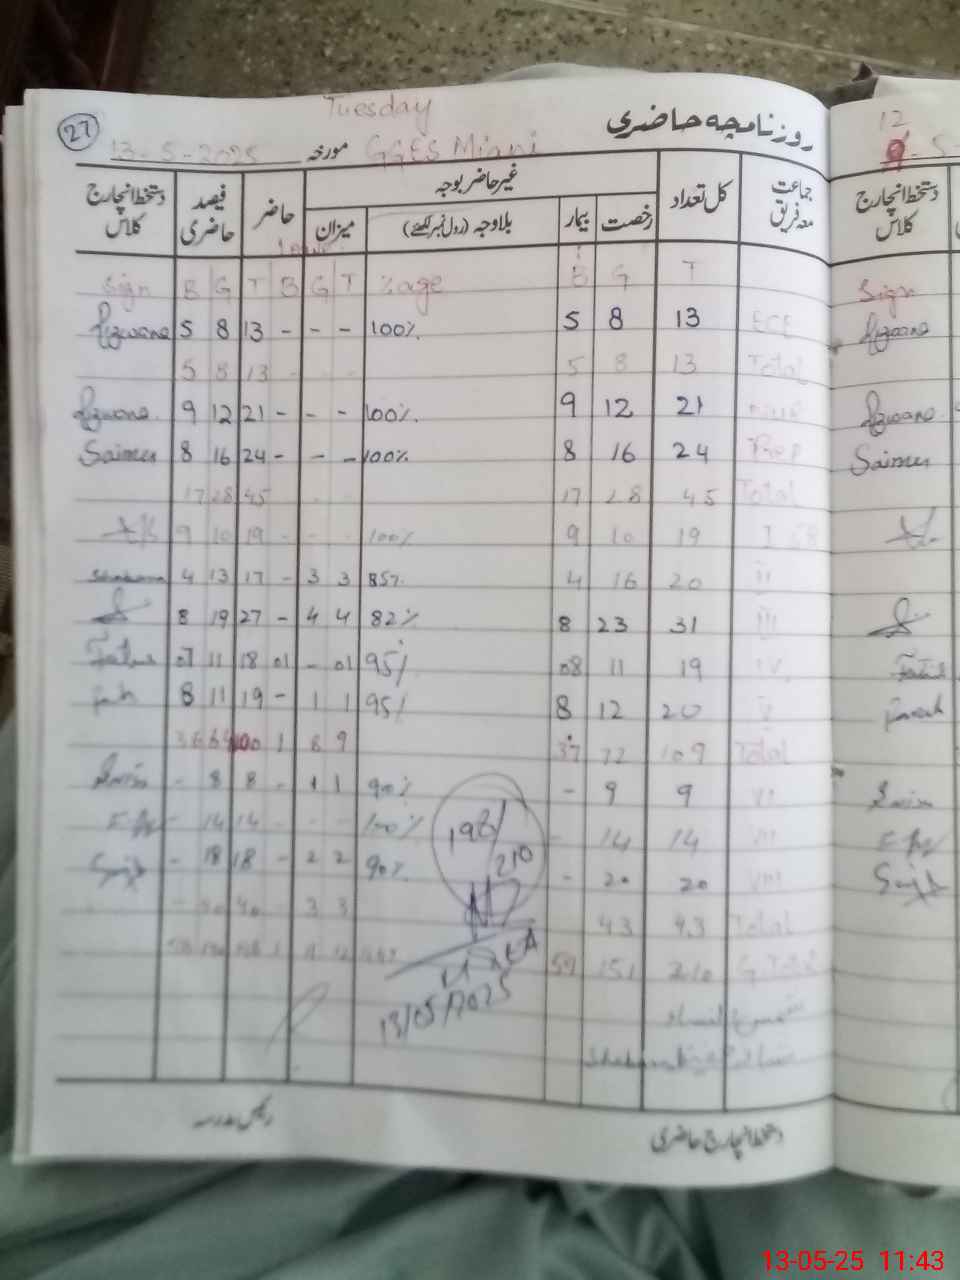 27
Tuesday
روزنامچہ حاضری
13-5-2025 مورخہ GGES Miani
جماعت معہ فریق کل تعداد غیر حاضر بوجہ حاضر فیصد حاضری دستخط انچارج کلاس
رخصت بیمار بلاوجہ (رول نمبر لکھئے) میزان
Sign B G T B G T %age B G T
Rizwana 5 8 13 - - - 100% 5 8 13 ECE
5 8 13 - - - 5 8 13 Total
Rizwana 9 12 21 - - - 100% 9 12 21
Saima 8 16 24 - - - 100% 8 16 24 Prep
17 28 45 17 28 45 Total
9 10 19 - - - 100% 9 10 19 I
4 13 17 - 3 3 85% 4 16 20 II
8 19 27 - 4 4 82% 8 23 31 III
07 11 18 01 - 01 95% 08 11 19 IV
8 11 19 - 1 1 95% 8 12 20 V
36 64 100 1 8 9 37 72 109 Total
- 8 8 - 1 1 90% - 9 9 VI
- 14 14 - - - 100% - 14 14 VII
- 18 18 - 2 2 90% - 20 20 VIII
- 40 40 - 3 3 43 43 Total
1 11 12 59 151 210 G.Total
198/210
13/05/2025
دستخط انچارج حاضری
رئیس مدرسہ
12
دستخط انچارج کلاس
Sign
Rizwana
Rizwana
Saima
13-05-25 11:43